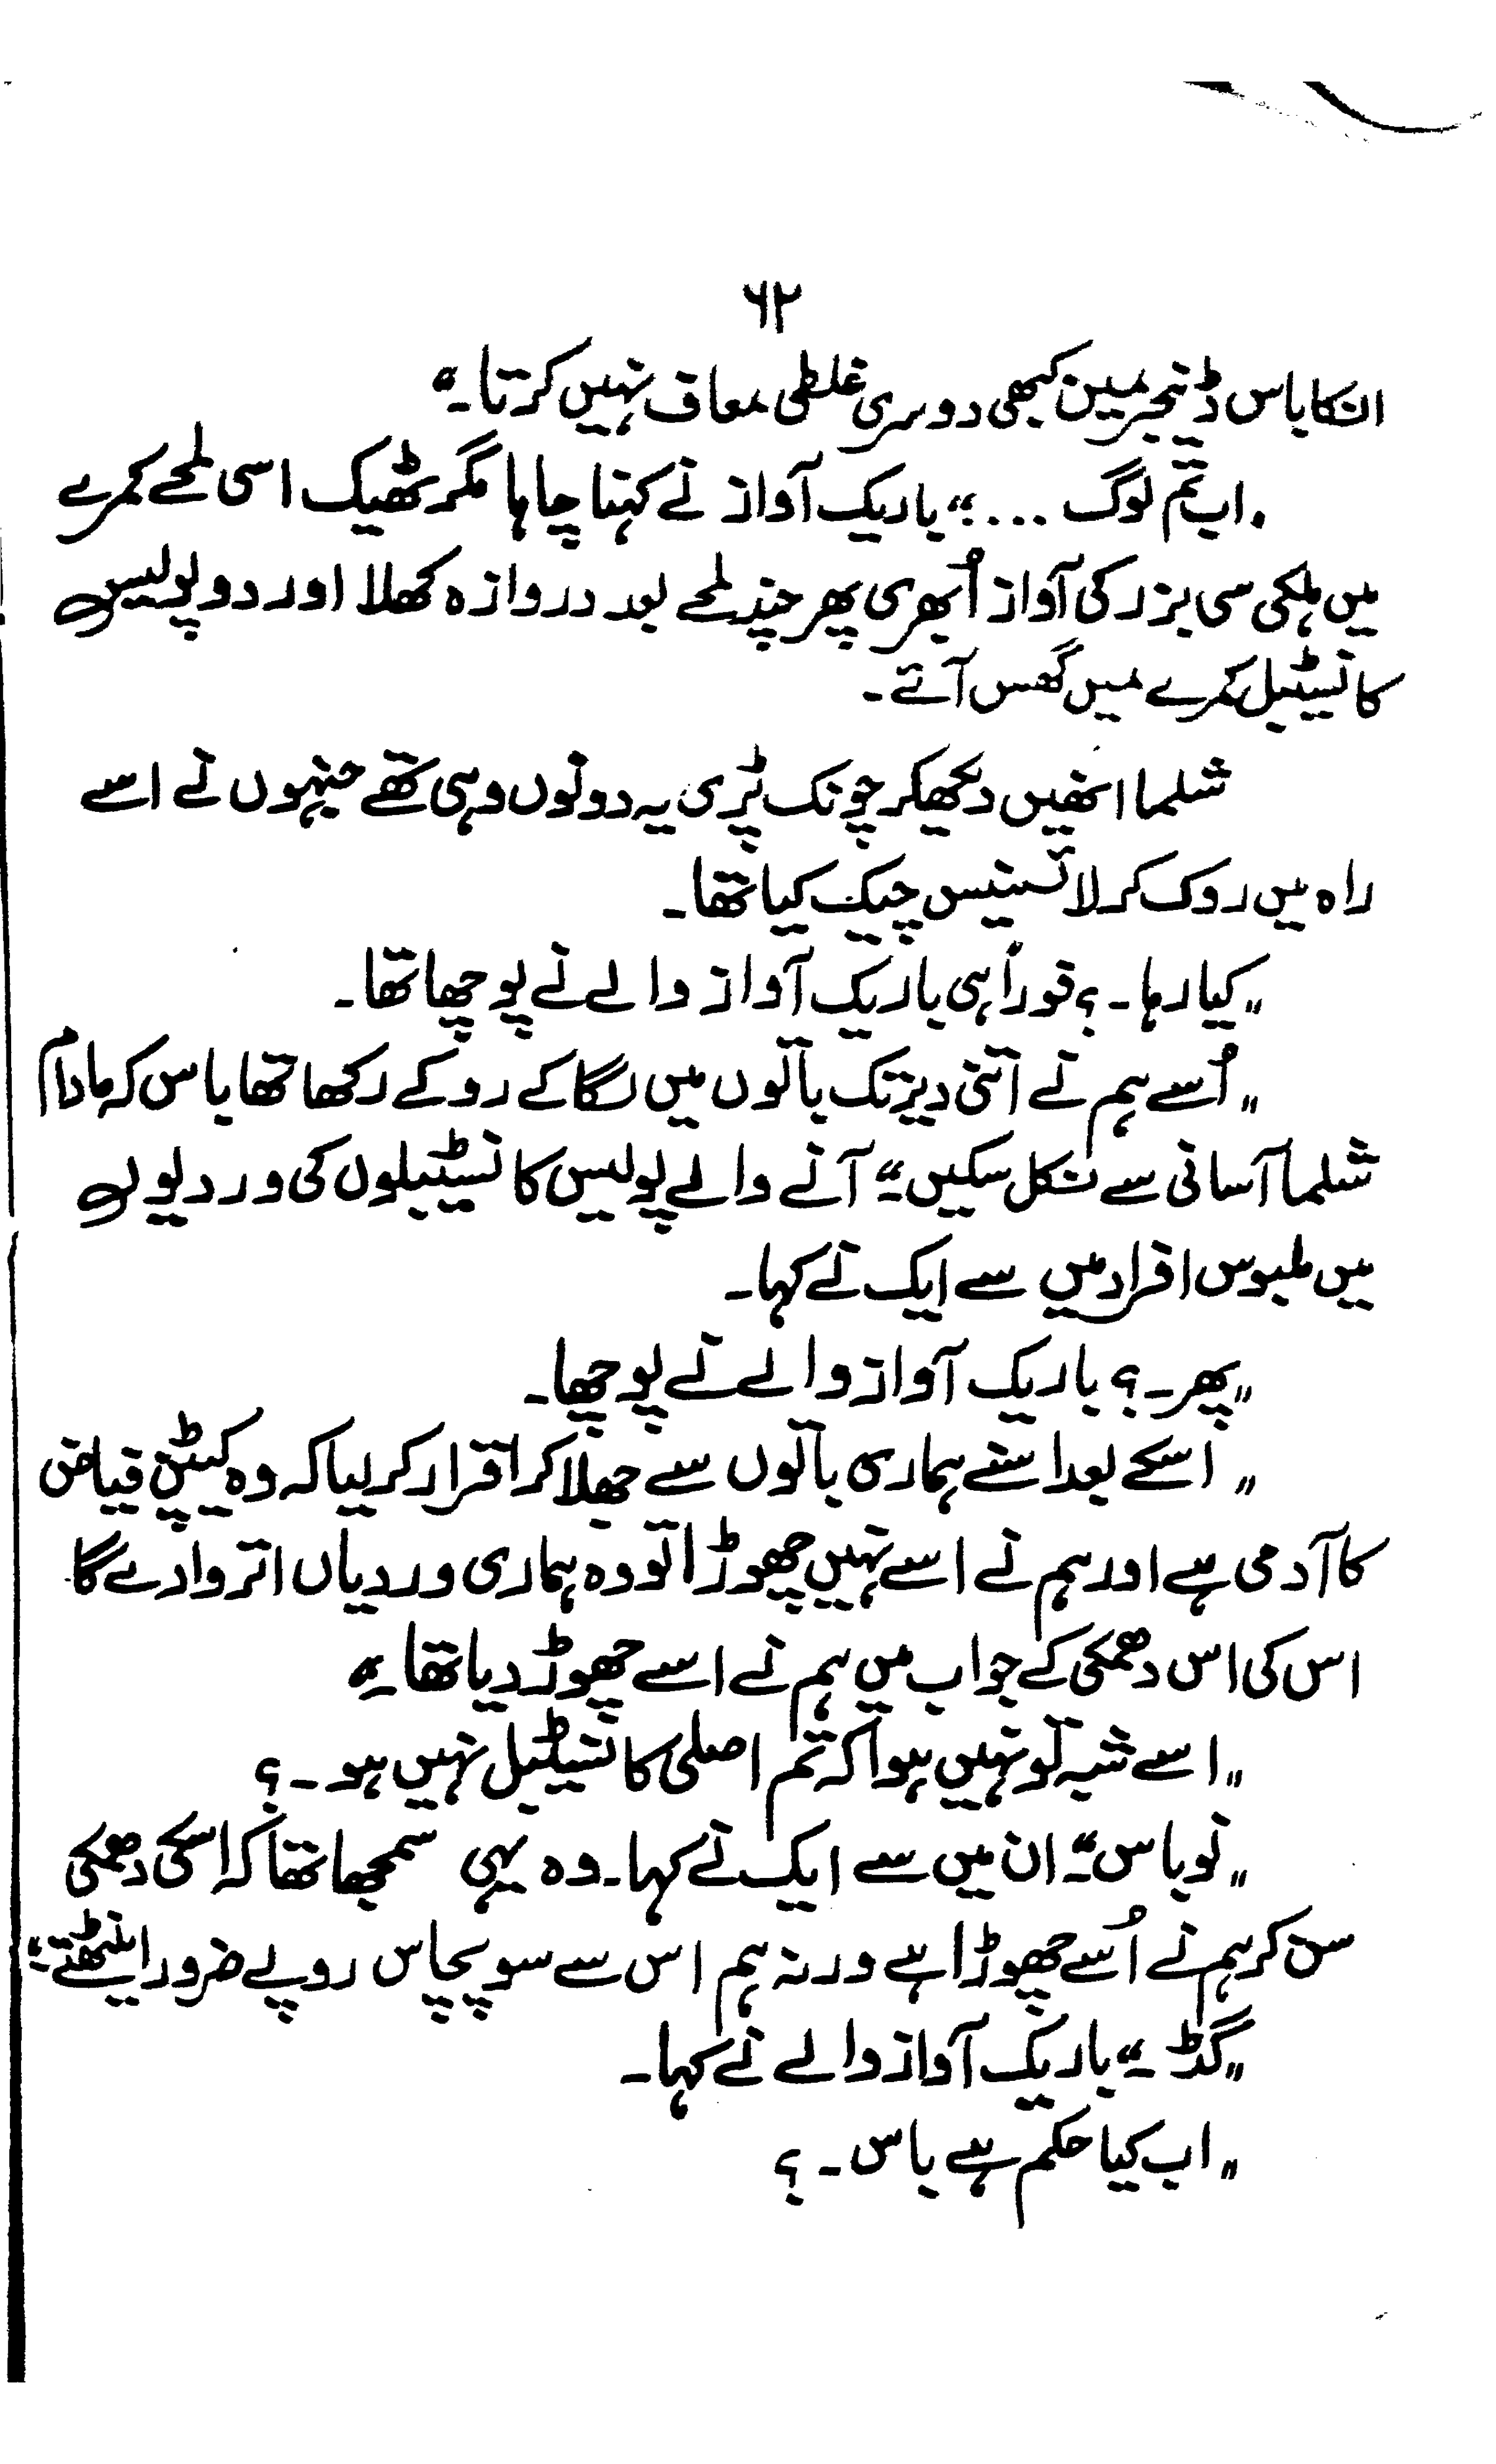 ۶۲
انکا باس ڈینجر مین کبھی دوسری غلطی معاف نہیں کرتا۔"
"اب تم لوگ ...." باریک آواز نے کہنا چاہا مگر ٹھیک اسی لمحے کمرے
میں ہلکی سی بزر کی آواز اُبھری پھر چند لمحے بعد دروازہ کھلا اور دو پولیس
کانسٹیبل کمرے میں گھس آئے۔
شلما انھیں دیکھکر چونک پڑی یہ دونوں وہی تھے جنہوں نے اسے
راہ میں روک کر لائسنیس چیک کیا تھا۔
"کیا رہا۔؟ فوراً ہی باریک آواز والے نے پوچھا تھا۔
"اُسے ہم نے اتنی دیر تک باتوں میں لگا کے روکے رکھا تھا باس کہ مادام
شلما آسانی سے نکل سکیں۔" آنے والے پولیس کانسٹیبلوں کی وردیوں
میں ملبوس افراد میں سے ایک نے کہا۔
"پھر۔؟ باریک آواز والے نے پوچھا۔
"اسکے بعد اسنے ہماری باتوں سے جھلا کر اقرار کر لیا کہ وہ کیپٹن فیاض
کا آدمی ہے اور ہم نے اسے نہیں چھوڑا تو وہ ہماری وردیاں اتروا دے گا
اس کی اس دھمکی کے جواب میں ہم نے اسے چھوڑ دیا تھا۔"
"اسے شبہ تو نہیں ہوا کہ تم اصلی کانسٹیبل نہیں ہو۔؟
"نو باس"۔ ان میں سے ایک نے کہا۔ وہ یہی سمجھا تھا کہ اسکی دھمکی
سن کر ہم نے اُسے چھوڑا ہے ورنہ ہم اس سے سو پچاس روپے ضرور اینٹھتے"
"گڈ۔" باریک آواز والے نے کہا۔
"اب کیا حکم ہے باس۔؟